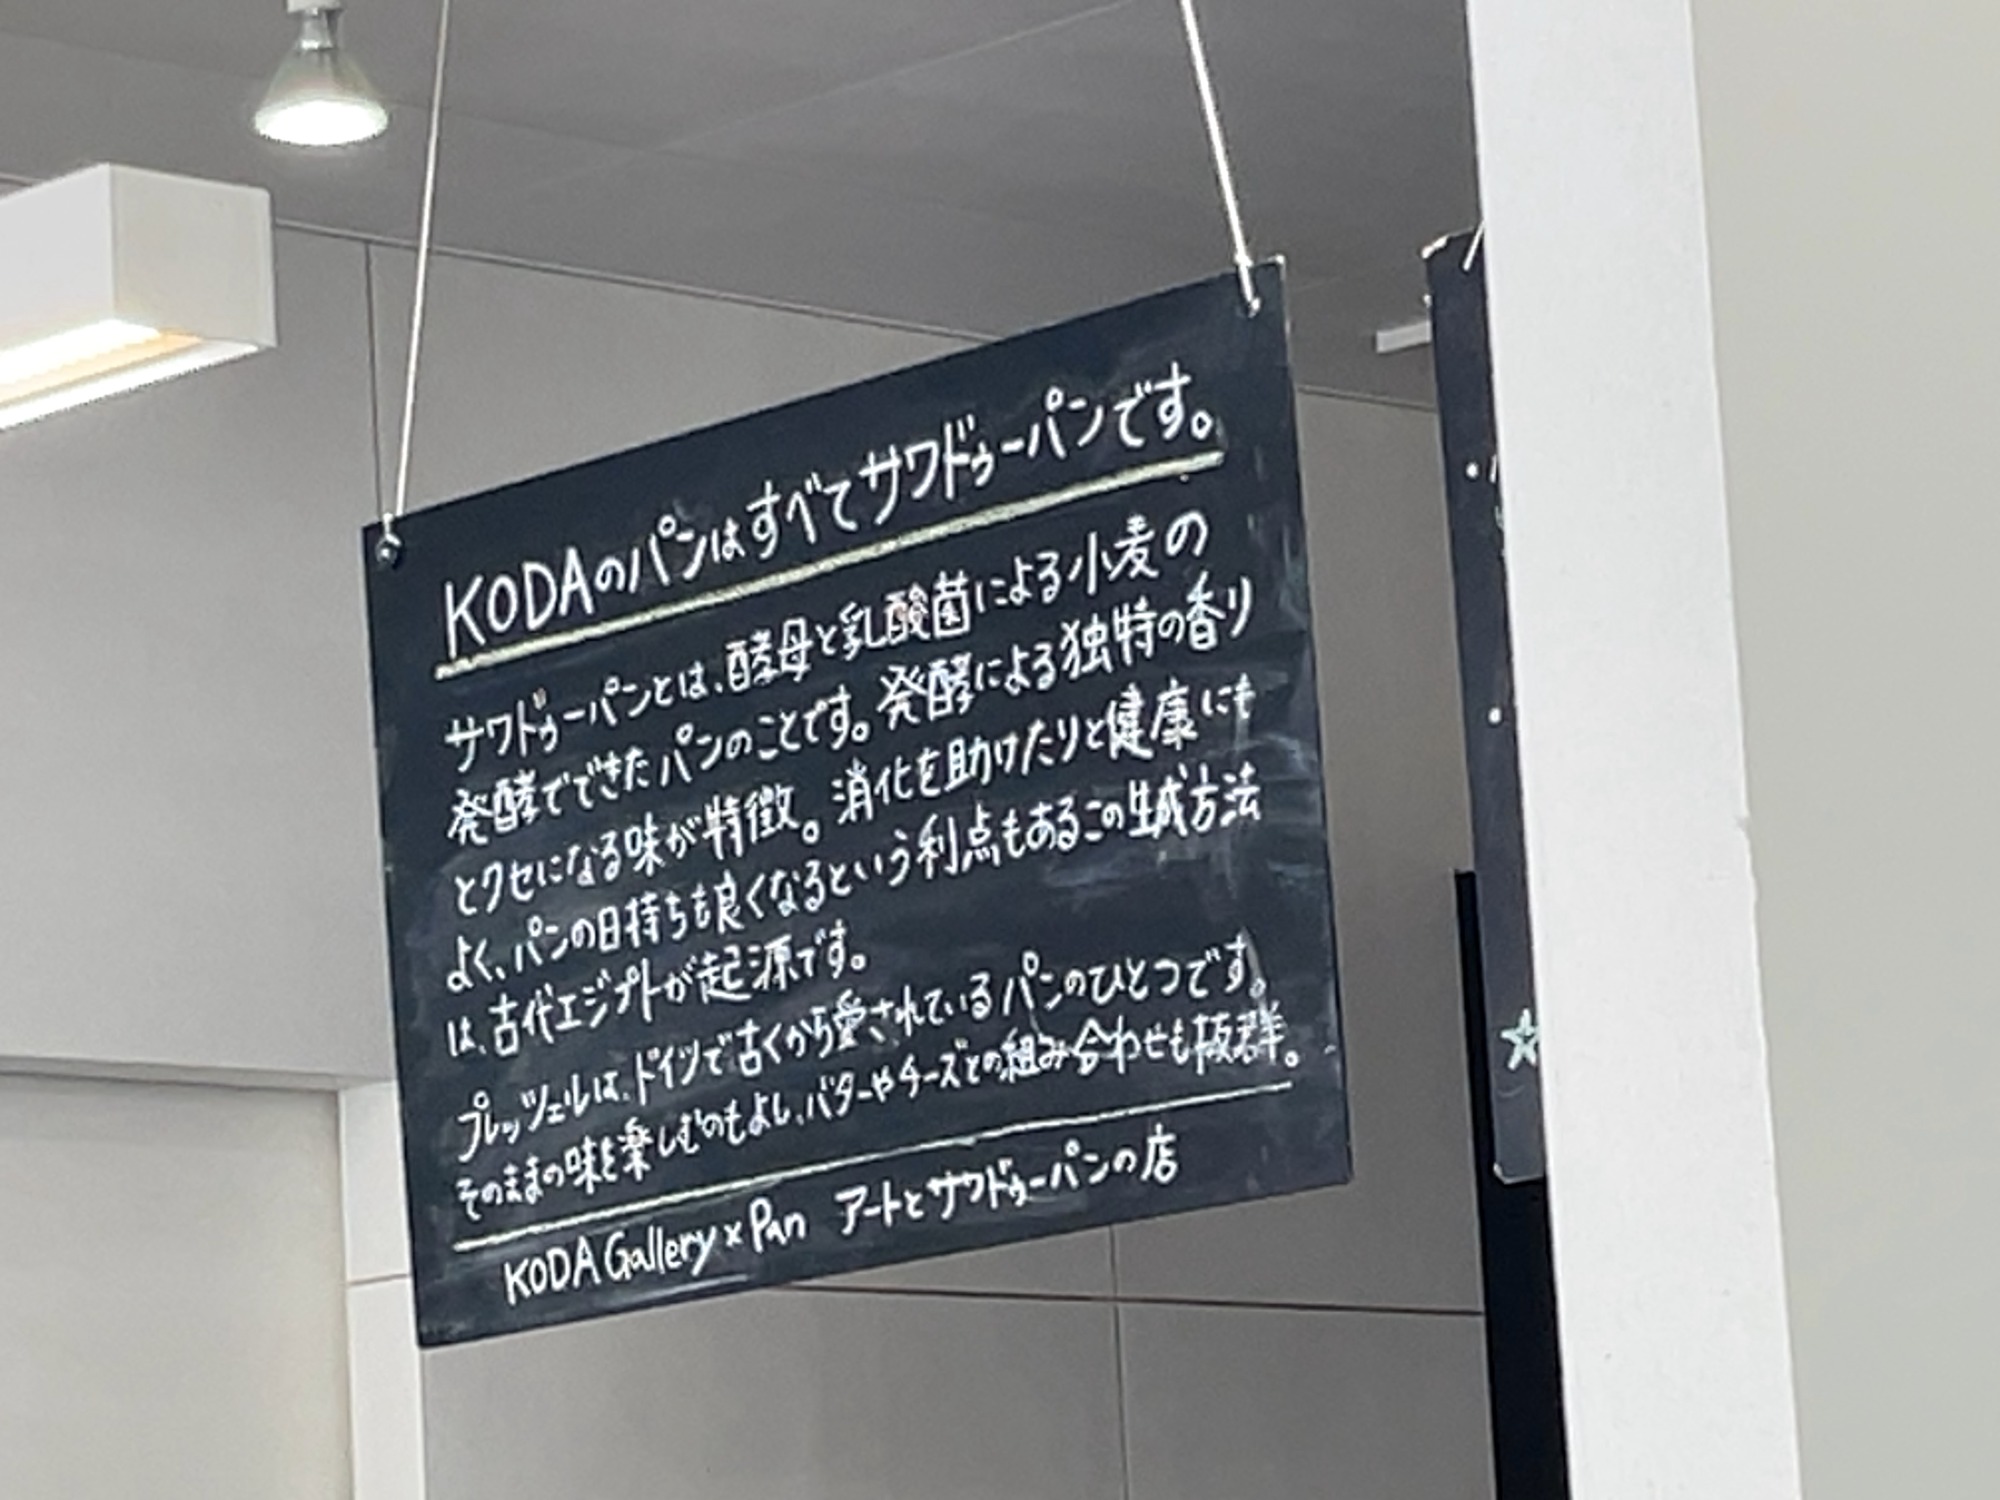 KODAのパンはすべてサワドゥーパンです。
サワドゥーパンとは、酵母と乳酸菌による小麦の
発酵でできたパンのことです。発酵による独特の香り
とクセになる味が特徴。消化を助けたりと健康にも
よく、パンの日持ちも良くなるという利点もあるこの生成方法
は、古代エジプトが起源です。
プレッツェルは、ドイツで古くから愛されているパンのひとつです。
そのままの味を楽しむのもよし、バターやチーズとの組み合わせも抜群。
KODA Gallery × Pan アートとサワドゥーパンの店